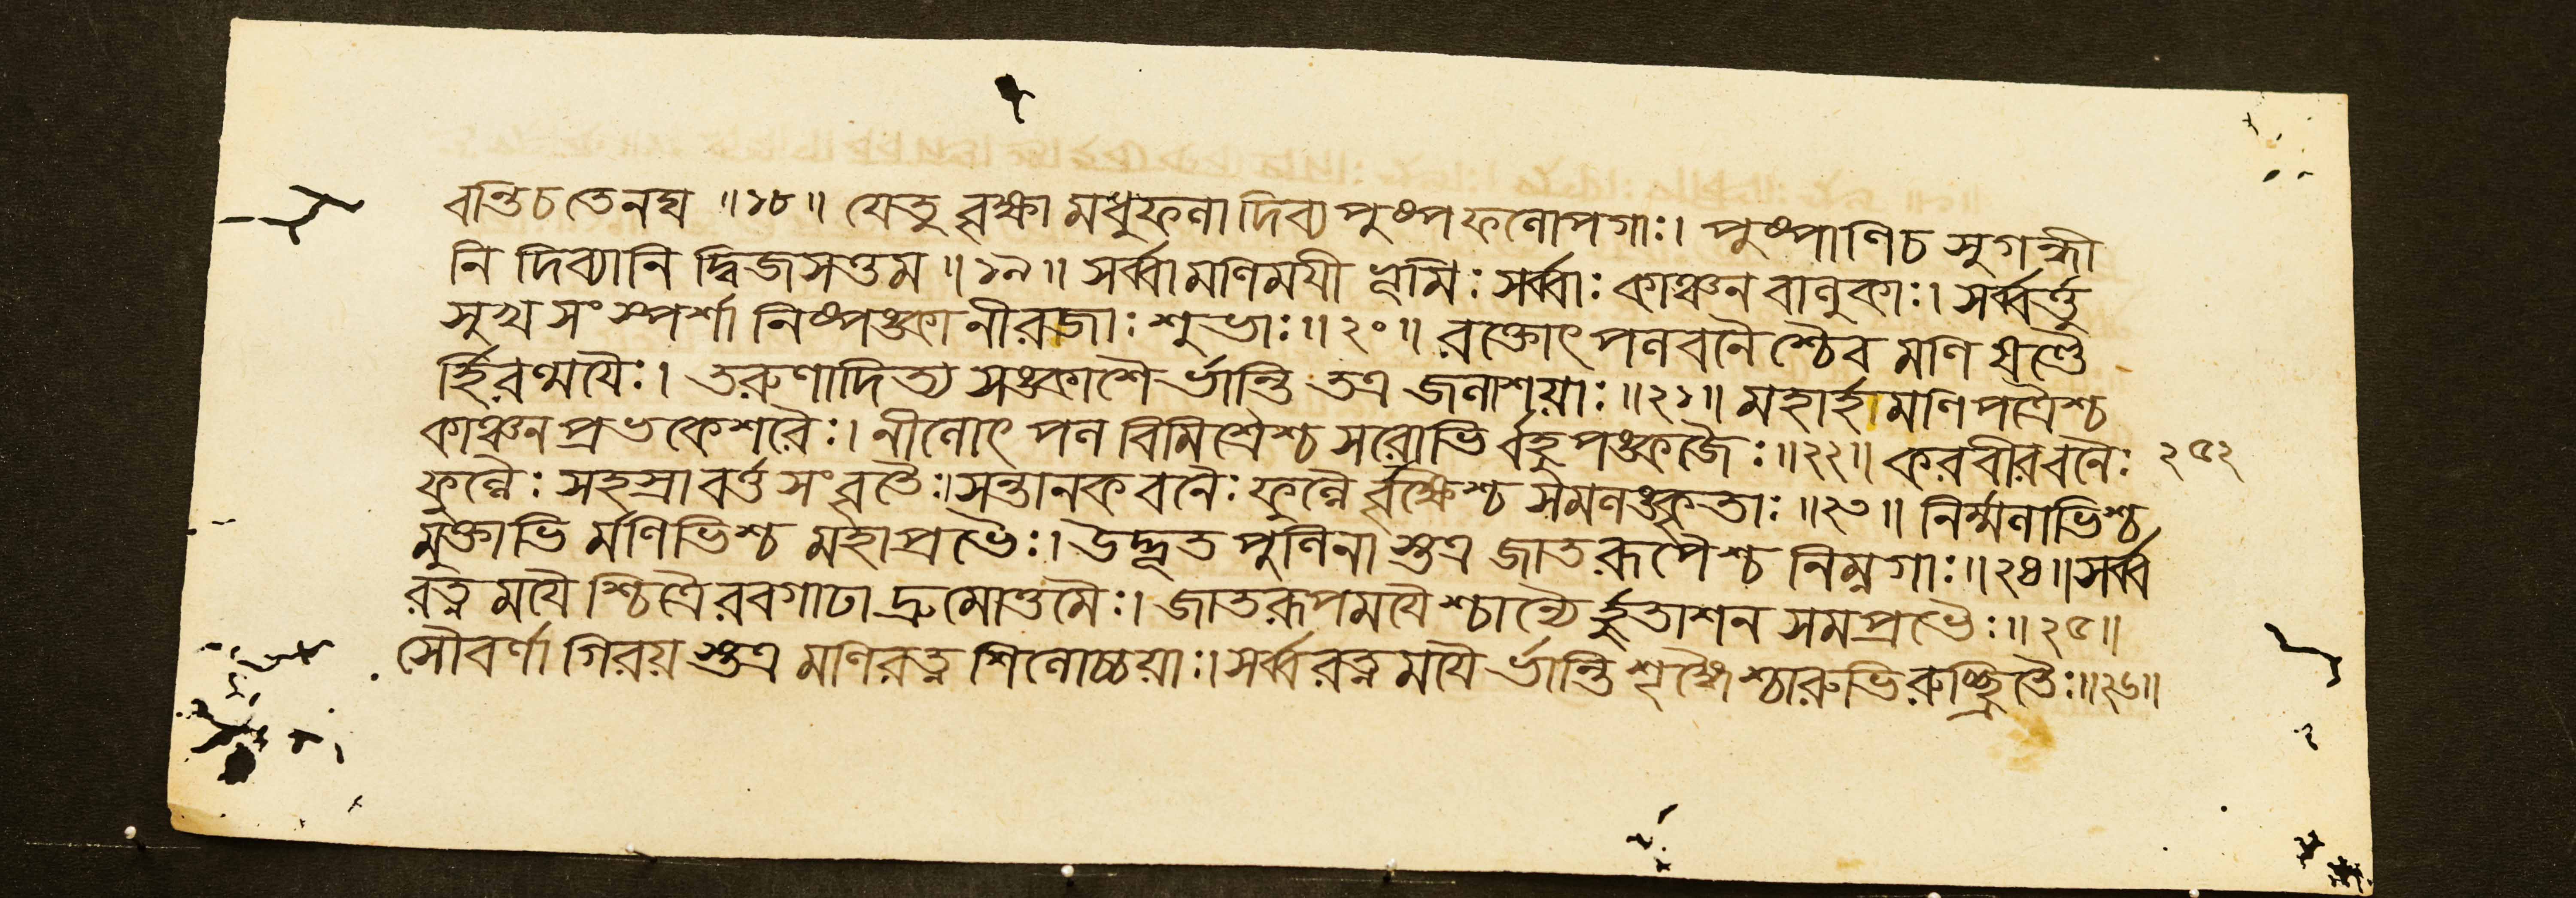 বন্তি চ তেনঘ ॥১৮॥ যেতু বৃক্ষা মধুফলা দিব্য পুষ্প ফলোপগাঃ। পুষ্পাণি চ সুগন্ধী
নি দিব্যানি দ্বিজসত্তম ॥১৯॥ সর্ব্বা মণিময়ী ভূমিঃ সর্ব্বাঃ কাঞ্চন বালুকাঃ। সর্ব্বর্ত্তু
সুখ সংস্পর্শা নিষ্পঙ্কা নীরজাঃ শুভাঃ॥২০॥ রক্তোৎপলবনৈশ্চৈব মণি খণ্ডৈ
র্হিরণ্ময়ৈঃ। তরুণাদিত্য সঙ্কাশৈর্ভান্তি তত্র জলাশয়াঃ॥২১॥ মহার্হামণিপত্রৈশ্চ
কাঞ্চনপ্রভকেশরৈঃ। নীলোৎপল বিমিশ্রৈশ্চ সরোভির্বহুপঙ্কজৈঃ॥২২॥ করবীরবনৈঃ ২৫২
ফুল্লৈঃ সহস্রাবর্ত্ত সংবৃতৈঃ। সন্তানক বনৈঃ ফুল্লৈর্বৃক্ষৈশ্চ সমলঙ্কৃতাঃ॥২৩॥ নির্ম্মলাভিশ্চ
মুক্তাভির্মণিভিশ্চ মহাপ্রভৈঃ। উদ্ভূত পুলিনাস্তত্র জাতরূপৈশ্চ নিম্নগাঃ॥২৪॥ সর্ব্ব
রত্ন ময়ৈশ্চিত্রৈরবগাঢা দ্রুমোত্তমৈঃ। জাতরূপময়ৈশ্চান্যৈর্হুতাশন সমপ্রভৈঃ॥২৫॥
সৌবর্ণা গিরয়স্তত্র মণিরত্ন শিলোচ্চয়াঃ। সর্ব্বরত্ন ময়ৈর্ভান্তি শৃঙ্গৈশ্চারুভিরুচ্ছ্রিতৈঃ॥২৬॥